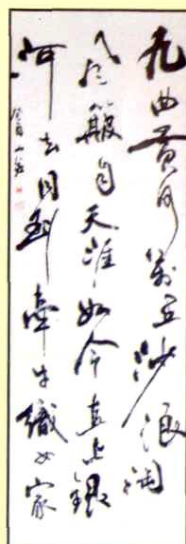 九曲黄河万里沙浪淘
风簸自天涯如今直上银
河去同到牵牛织女家